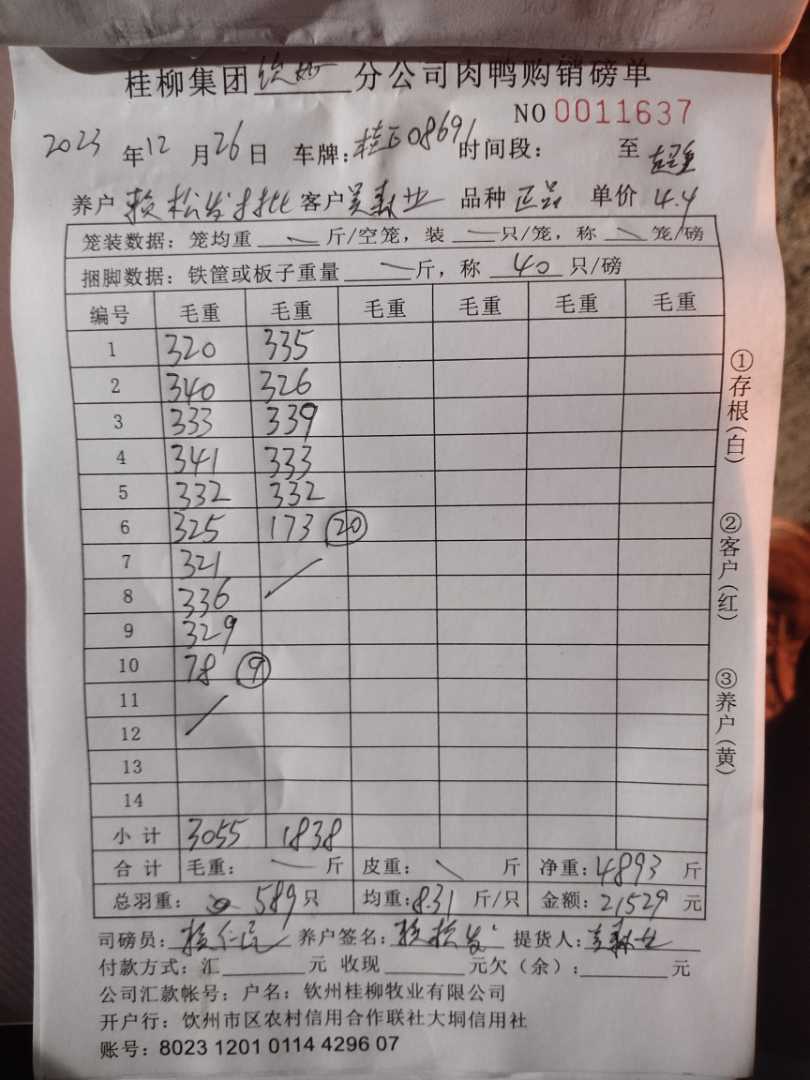 桂柳集团 钦州 分公司肉鸭购销磅单
NO 0011637
2023 年 12 月 26 日 车牌: 桂D08691 时间段: 至
养户 赖松发 客户 吴森业 品种 正品 单价 4.4
笼装数据: 笼均重 斤/空笼, 装 只/笼, 称 笼/磅
捆脚数据: 铁筐或板子重量 斤, 称 40 只/磅
编号 毛重 毛重 毛重 毛重 毛重 毛重
1 320 335
2 340 326
3 333 339
4 341 333
5 332 332
6 325 173 ⑳
7 321
8 336
9 329
10 78 ⑨
11
12
13
14
小计 3055 1838
合计 毛重: 斤 皮重: 斤 净重: 4893 斤
总羽重: 589 只 均重: 8.31 斤/只 金额: 21529 元
司磅员: 养户签名: 赖松发 提货人: 吴森业
付款方式: 汇 元 收现 元欠(余): 元
公司汇款帐号: 户名: 钦州桂柳牧业有限公司
开户行: 钦州市区农村信用合作联社大垌信用社
账号: 8023 1201 0114 4296 07
①存根(白)
②客户(红)
③养户(黄)